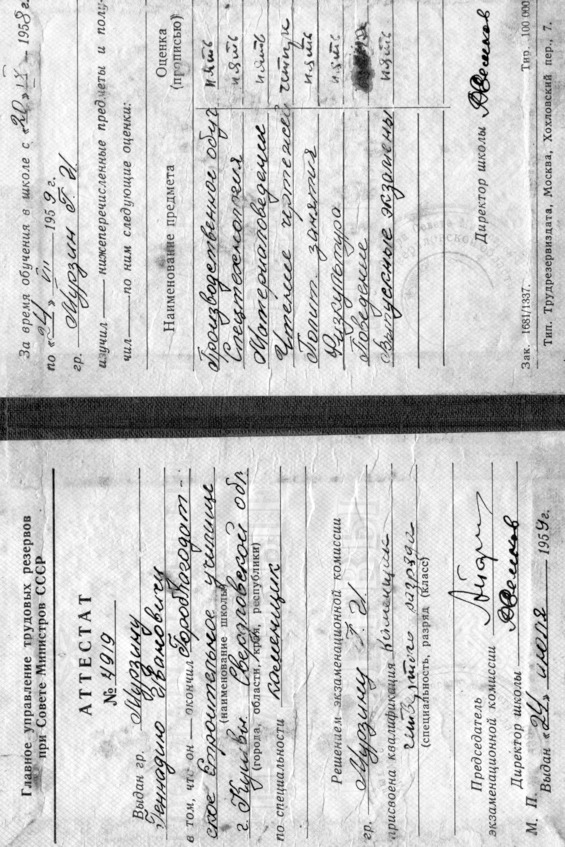 Главное управление трудовых резервов
при Совете Министров СССР
АТТЕСТАТ
№ 4919
Выдан гр. Мурзину
Геннадию Ивановичу
в том, что он окончил Гороблагодат-
ское Строительное училище
(наименование школы)
г. Кушвы Свердловской обл
(города, области, края, республики)
по специальности каменщик
Решением экзаменационной комиссии
гр. Мурзину Г. И.
присвоена квалификация каменщик
четвертого разряда
(специальность, разряд (класс)
Председатель
экзаменационной комиссии
Директор школы
М. П. Выдан «24» июля 1959 г.
За время обучения в школе с «20» IX 1958 г.
по «24» VII 1959 г.
гр. Мурзин Г. И
изучил нижеперечисленные предметы и полу-
чил по ним следующие оценки:
Наименование предмета Оценка (прописью)
Производственное обуч пять
Спецтехнология пять
Материаловедение пять
Чтение чертежей четыре
Полит. занятия пять
Физкультура пять
Поведение
Выпускные экзамены пять
Директор школы
Зак. 1681/1337. Тир. 100 000
Тип. Трудрезервиздата, Москва, Хохловский пер., 7.